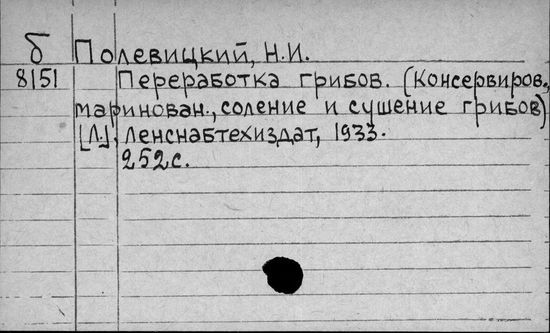 б Полевицкий, Н.И.
8151 Переработка грибов. (Консервиров.,
маринован., соление и сушение грибов)
[Л.], Ленснабтехиздат, 1933.
252с.